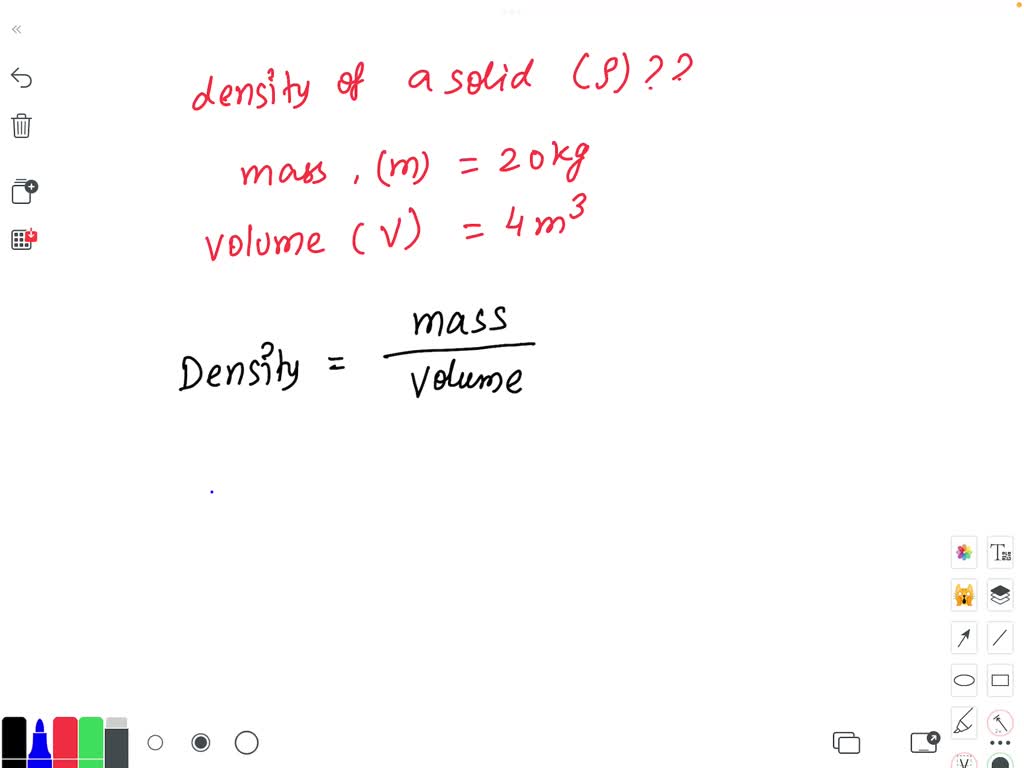 density of a solid (ρ) ??
mass, (m) = 20kg
volume (V) = 4m³
Density = mass
volume